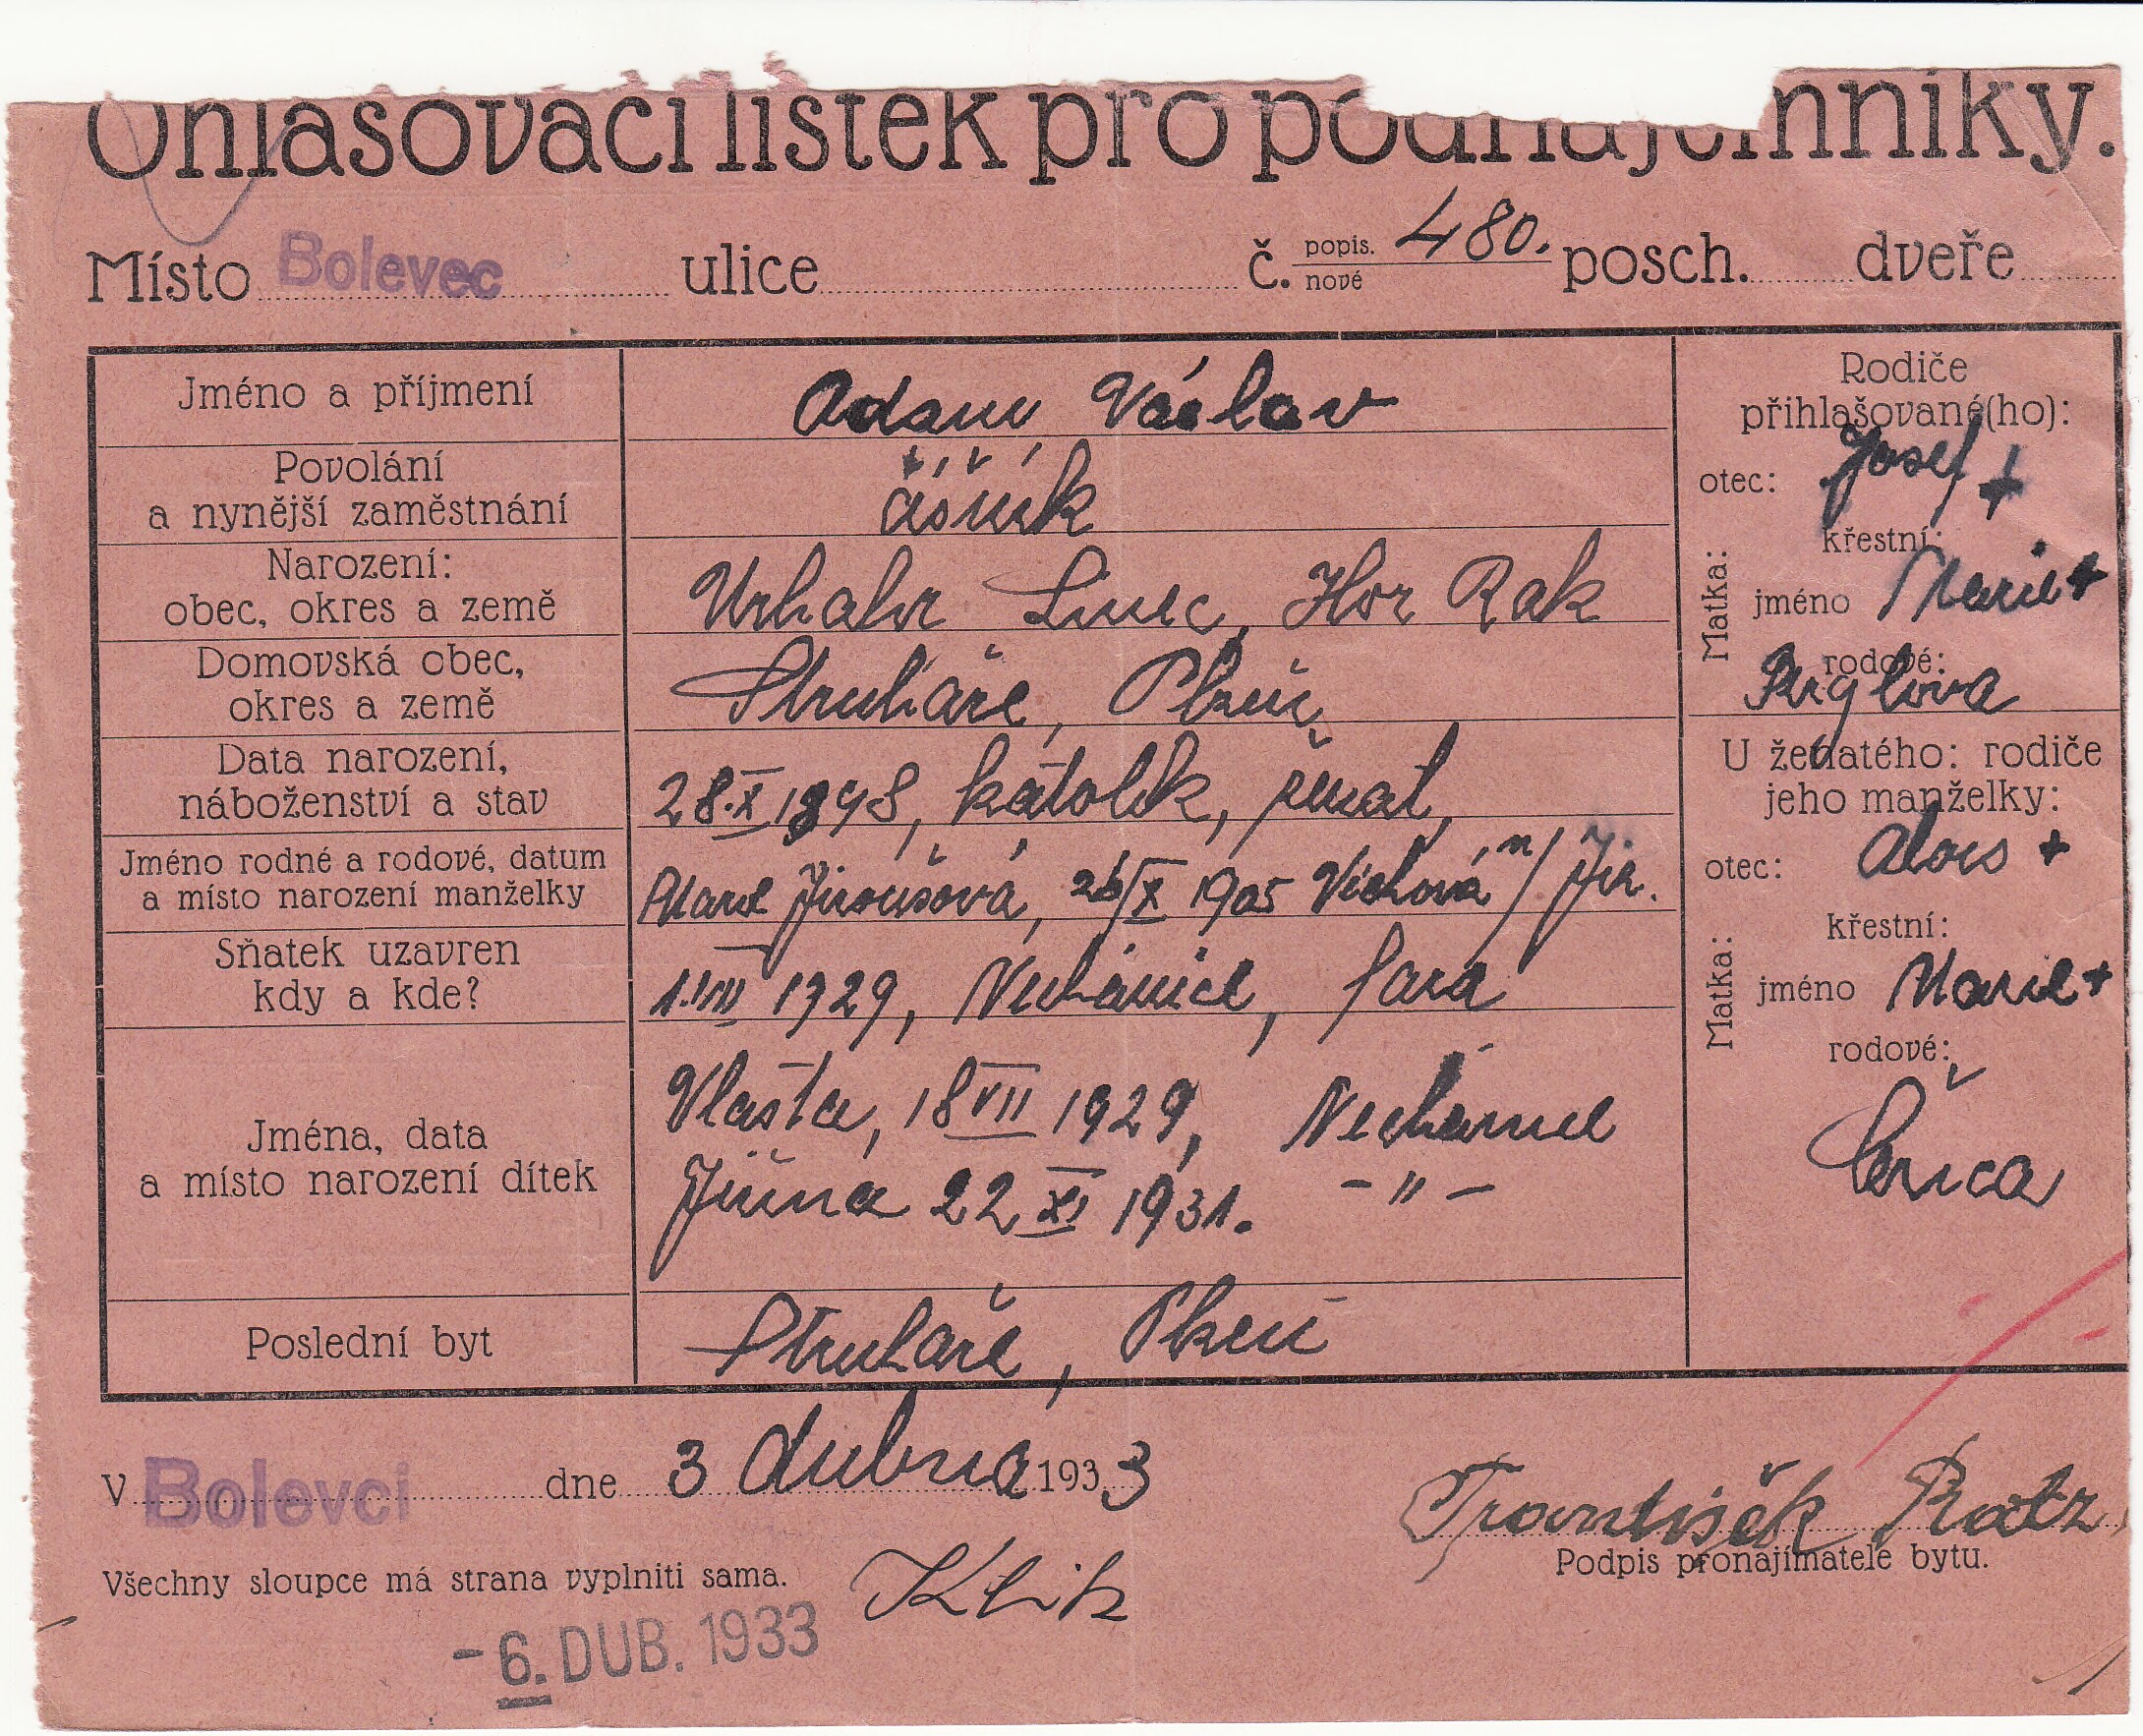 Ohlašovací lístek pro podnájemníky.
Místo Bolevec ulice č. popis. nové 480. posch. dveře
Jméno a příjmení Adam Václav
Povolání
a nynější zaměstnání číšník
Narození:
obec, okres a země Urhahr Linec, Hor Rak
Domovská obec,
okres a země Struháře, Plzeň
Data narození,
náboženství a stav 28.X 1898, katolík, ženat,
Jméno rodné a rodové, datum
a místo narození manželky Marie Jiroušová, 26/X 1905 n/ Jiz.
Sňatek uzavren
kdy a kde? 1929, Nechanice, fara
Jména, data
a místo narození dítek
Vlasta, 18 VII 1929, Nechanice
Jiřina 22 XI 1931. - " -
Poslední byt Struhaře, Plzeň
Rodiče
přihlašované(ho):
otec: Josef +
Matka:
křestní:
jméno Marie +
rodové:
U ženatého: rodiče
jeho manželky:
otec: Alois +
Matka:
křestní:
jméno Marie +
rodové:
V Bolevci dne 3 dubna 1933
František
Podpis pronajímatele bytu.
Všechny sloupce má strana vyplniti sama.
-6. DUB. 1933